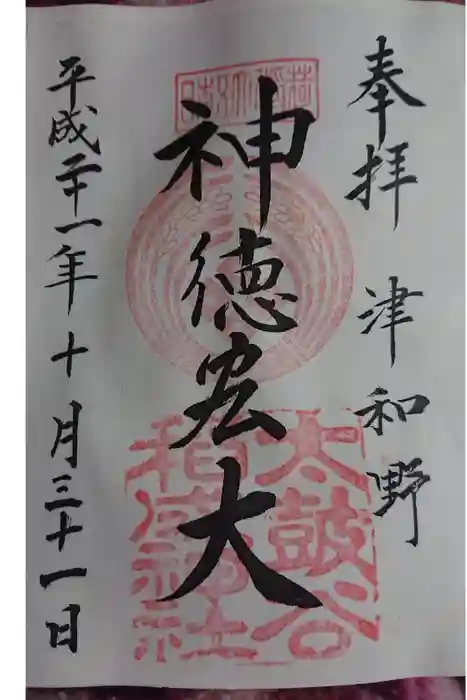 奉拝 津和野
神徳宏大
平成二十一年十月三十一日
太鼓谷
稲成神社